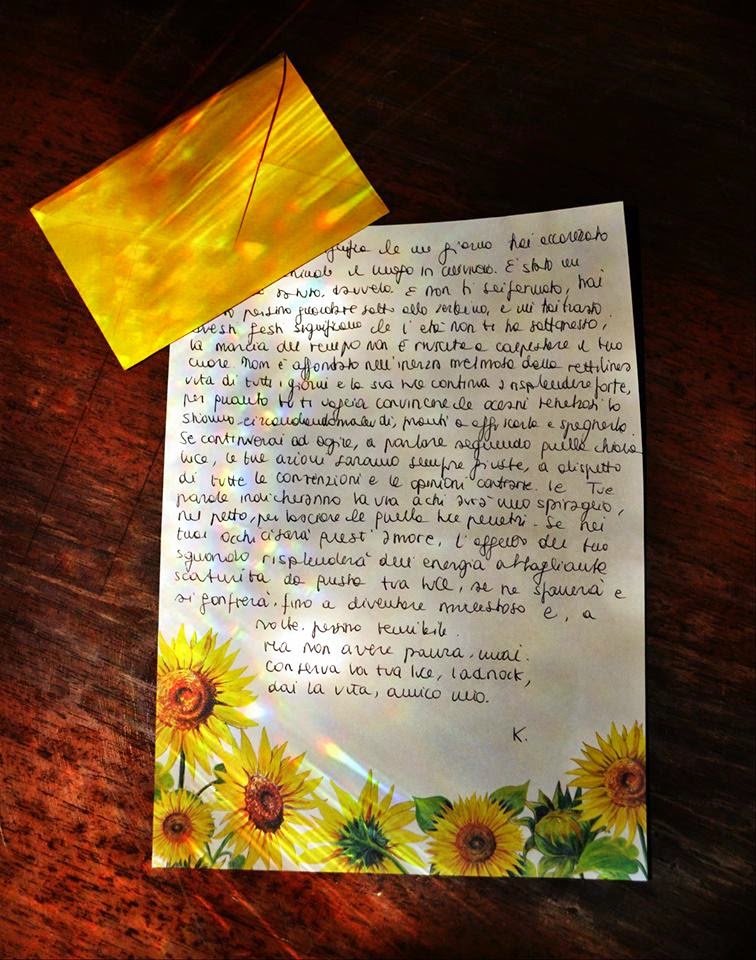 che un giorno hai accarezzato
E stato un
davvero. E non ti sei fermato, hai
persino
significa che l'età non ti ha sottomesso,
la marcia del tempo non è riuscita a calpestare il tuo
cuore. Non è affondato nell'inerzia melmosa della rettilinea
vita di tutti i giorni e la sua luce continua a risplendere forte,
per quanto tu ti voglia convincere che oceani tenebrosi lo
stiano circondando, pronti a e spegnerlo.
Se continuerai ad agire, a parlare seguendo quella chiara
luce, le tue azioni saranno sempre giuste, a dispetto
di tutte le convenzioni e le opinioni contrarie. le Tue
parole indicheranno la via a chi avrà uno spiraglio,
nel petto, per lasciare che quella luce penetri. Se nei
tuoi occhi ci sarà quest'amore, l'oggetto del tuo
sguardo risplenderà dell'energia abbagliante
scaturita da questa tua luce, se ne sfamerà e
si gonfierà, fino a diventare maestoso e, a
volte, persino temibile.
Ma non avere paura, mai.
Conserva la tua luce, Ladnock,
dai la vita, amico mio.
K.